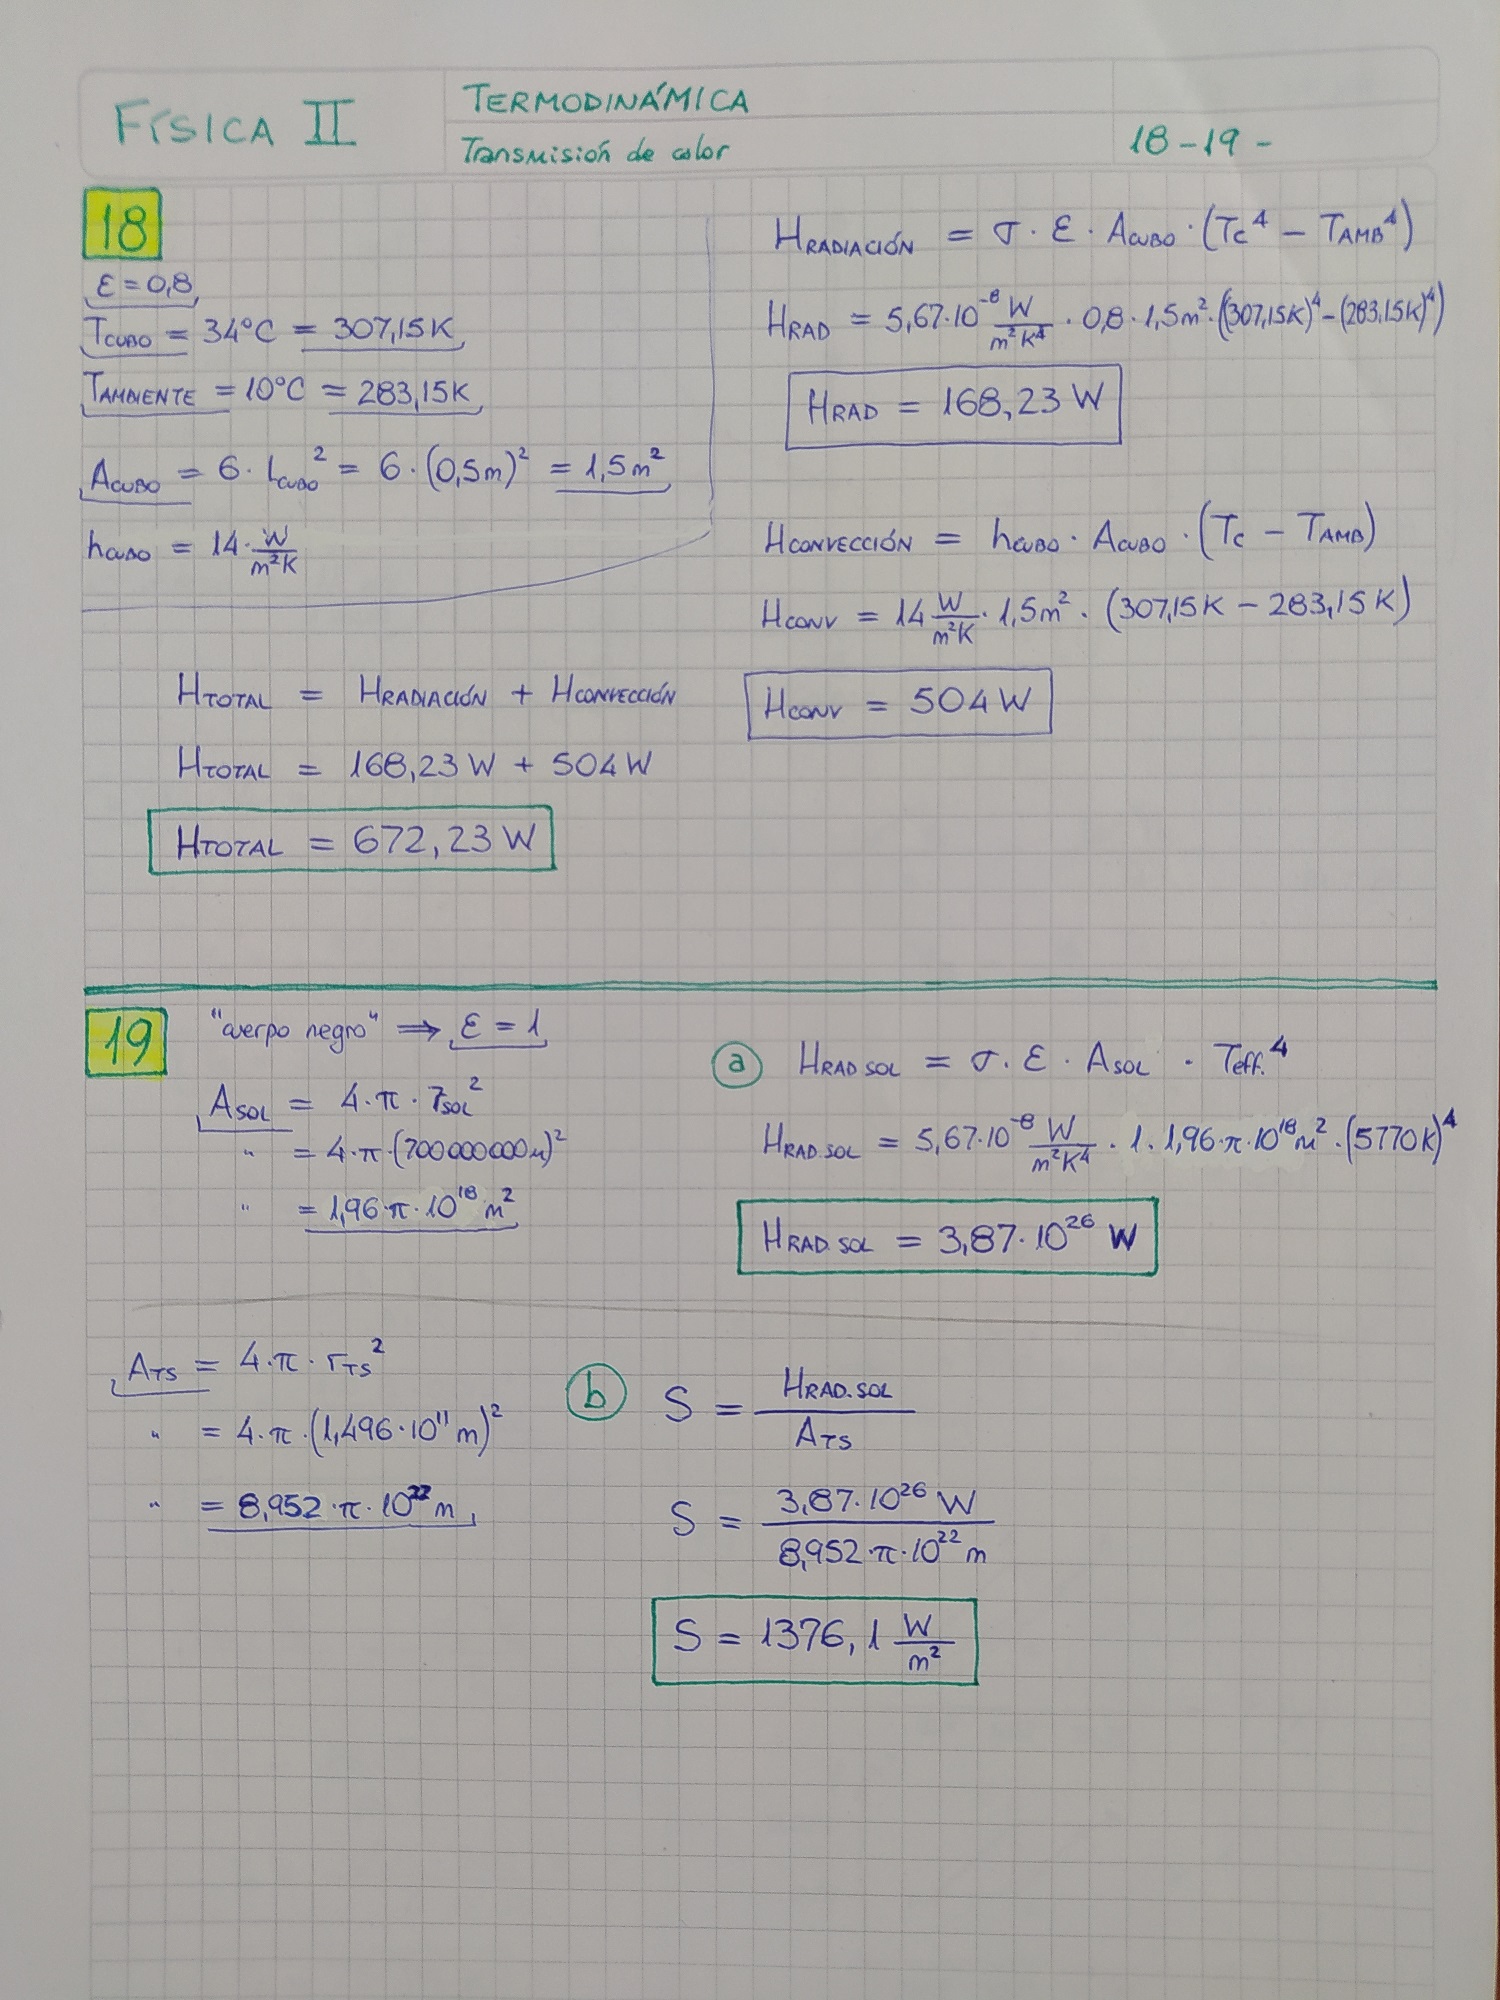 FÍSICA II
TERMODINÁMICA
Transmisión de calor
18-19-
18
ε = 0,8
TCUBO = 34°C = 307,15K
TAMBIENTE = 10°C = 283,15K
ACUBO = 6 · LCUBO² = 6 · (0,5m)² = 1,5m²
hCUBO = 14 · W/m²K
HRADIACIÓN = σ · ε · ACUBO · (TC⁴ − TAMB⁴)
HRAD = 5,67·10⁻⁸ W/m²K⁴ · 0,8 · 1,5m² · ((307,15K)⁴ − (283,15K)⁴)
HRAD = 168,23 W
HCONVECCIÓN = hCUBO · ACUBO · (TC − TAMB)
HCONV = 14 W/m²K · 1,5m² · (307,15K − 283,15K)
HCONV = 504 W
HTOTAL = HRADIACIÓN + HCONVECCIÓN
HTOTAL = 168,23 W + 504 W
HTOTAL = 672,23 W
19
"cuerpo negro" ⇒ ε = 1
ASOL = 4·π·rSOL²
" = 4·π·(700000000m)²
" = 1,96·π·10¹⁸ m²
a HRAD SOL = σ · ε · ASOL · Teff.⁴
HRAD.SOL = 5,67·10⁻⁸ W/m²K⁴ · 1 · 1,96·π·10¹⁸m² · (5770K)⁴
HRAD.SOL = 3,87·10²⁶ W
ATS = 4·π·rTS²
" = 4·π·(1,496·10¹¹ m)²
" = 8,952·π·10²² m
b S = HRAD.SOL/ATS
S = 3,87·10²⁶ W/8,952·π·10²² m
S = 1376,1 W/m²